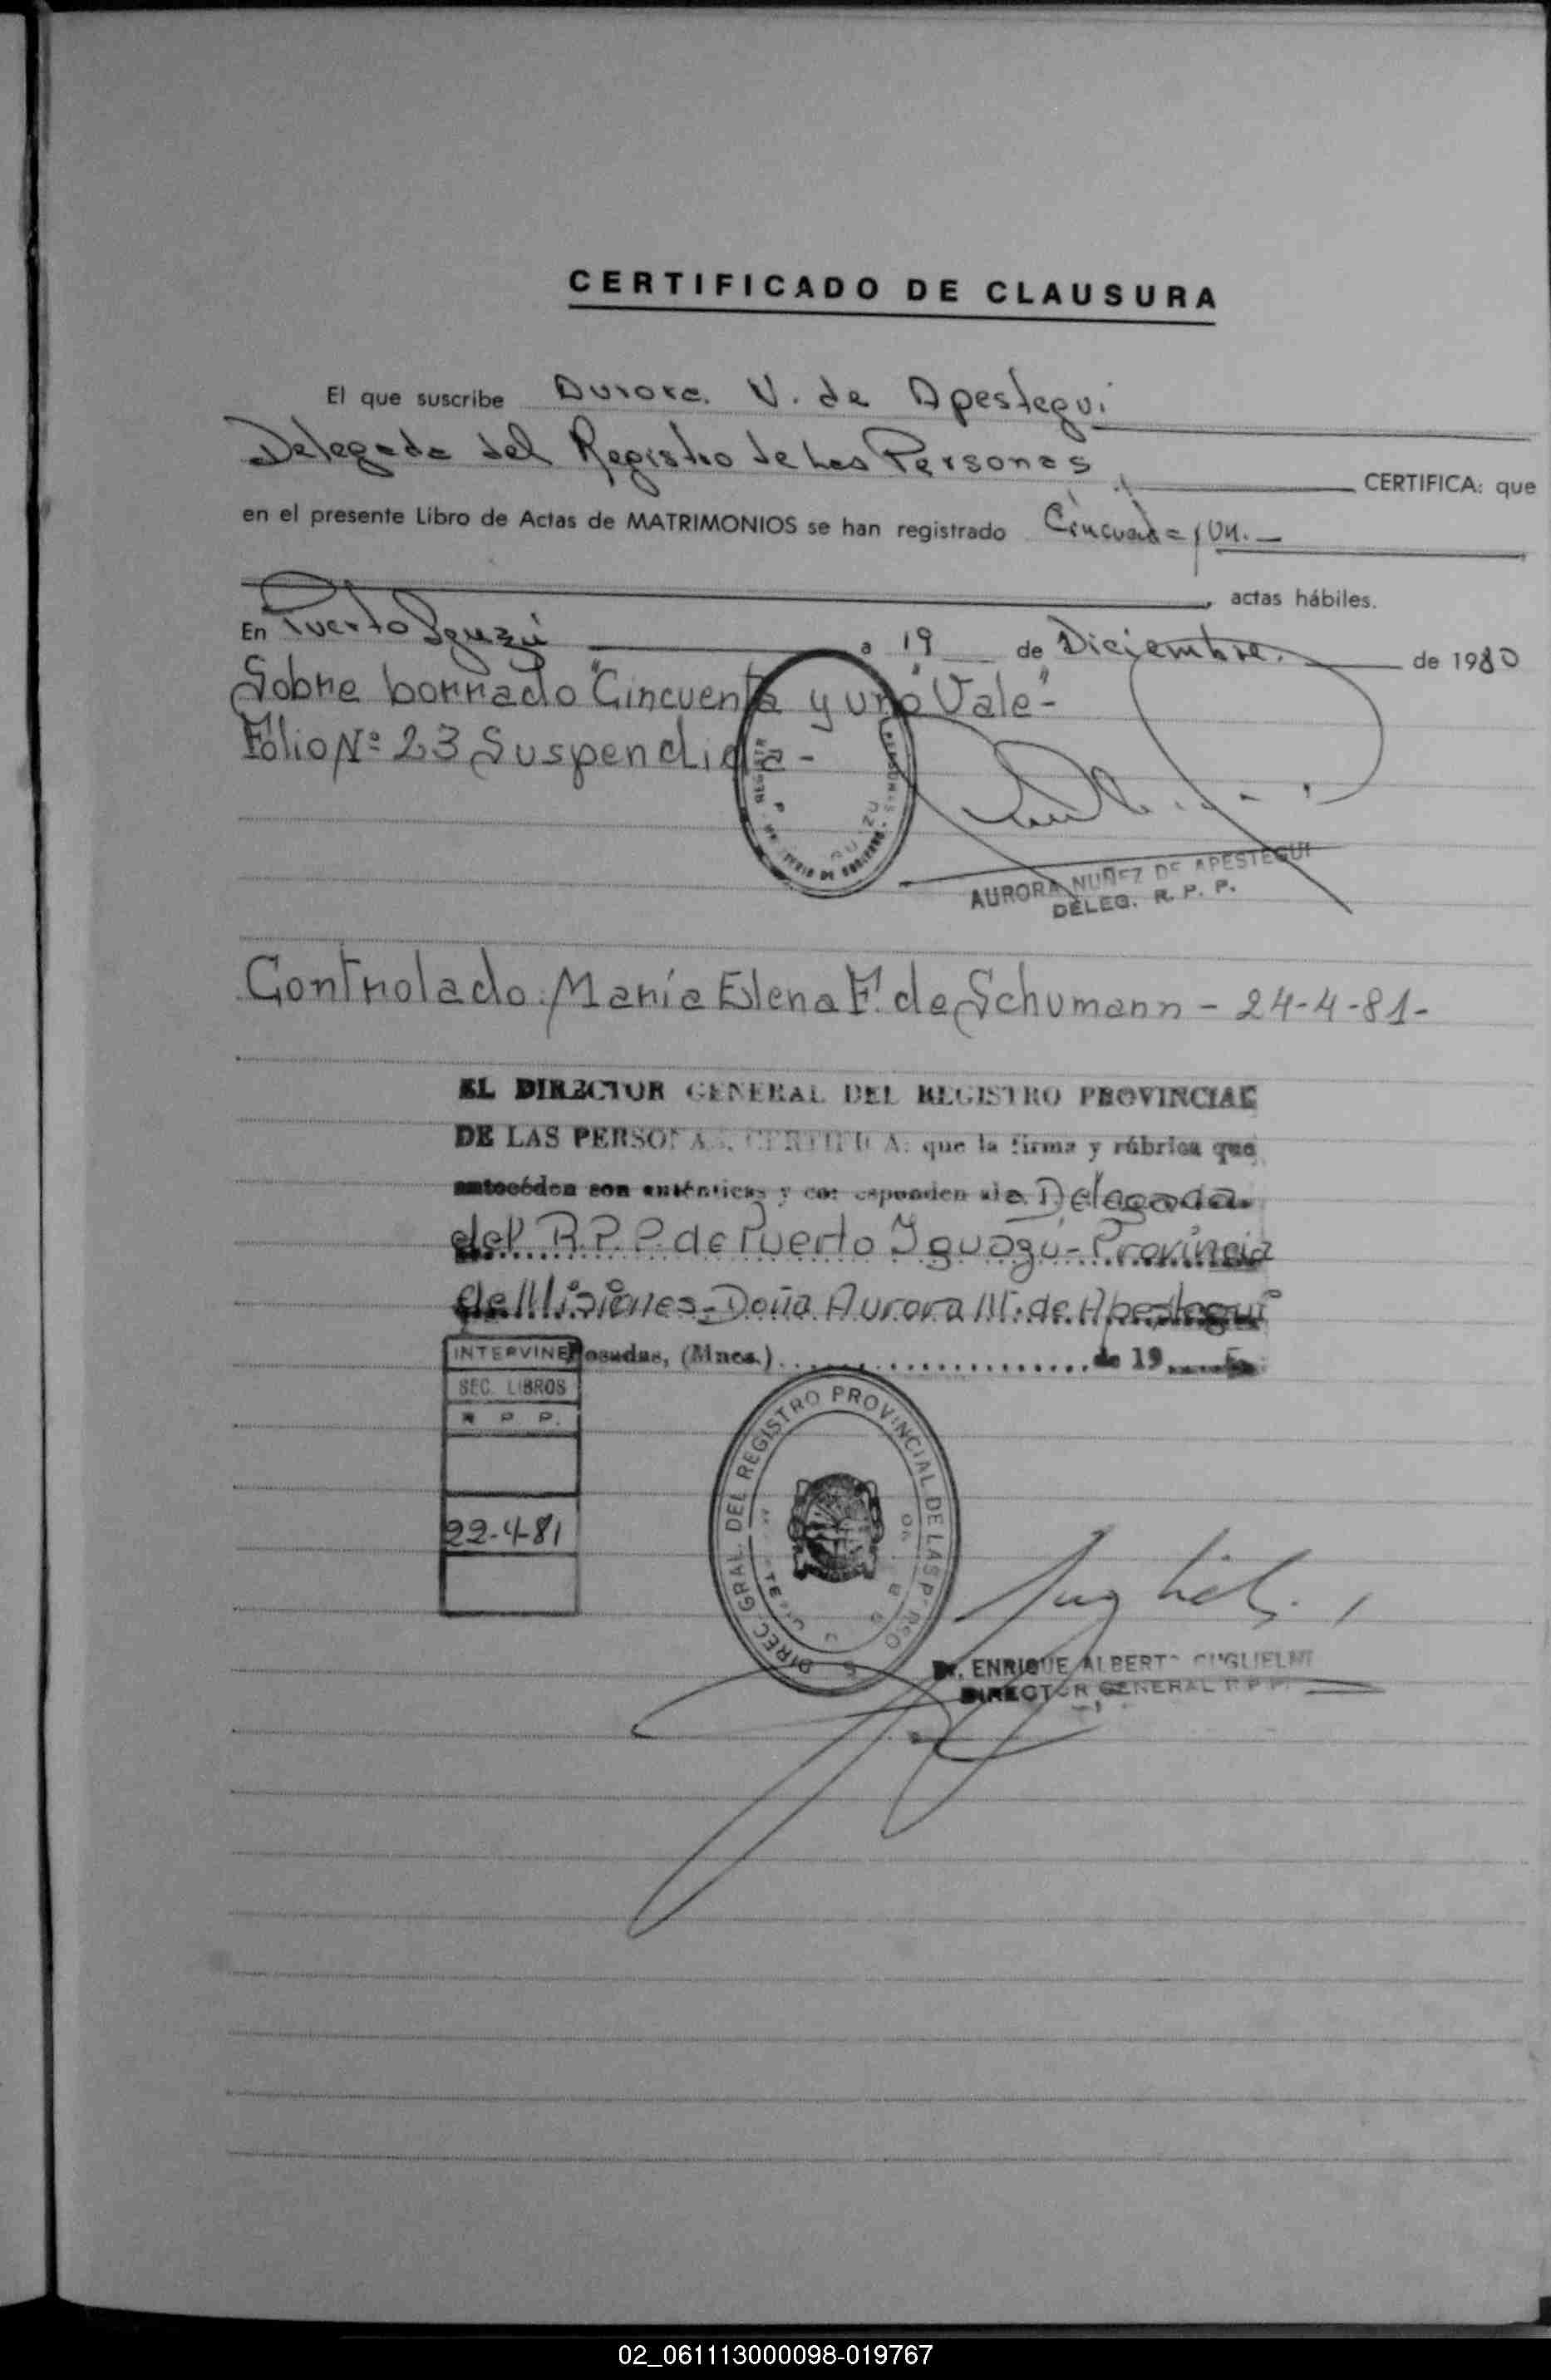 CERTIFICADO DE CLAUSURA
El que suscribe Aurora. N. de Apestegui
Delegada del Registro de Las Personas CERTIFICA: que
en el presente Libro de Actas de MATRIMONIOS se han registrado Cincuenta y un.—
, actas hábiles.
En Puerto Iguazú a 19 de Diciembre. de 1980
Sobre borrado "Cincuenta y uno" Vale"-
Folio Nº 23 Suspendida-
AURORA NUÑEZ DE APESTEGUI
DELEG. R. P. P.
Controlado: María Elena F. de Schumann - 24-4-81-
EL DIRECTOR GENERAL DEL REGISTRO PROVINCIAL
DE LAS PERSONAS, CERTIFICA: que la firma y rúbrica que
anteceden son auténticas y corresponden a la Delegada
del R.P.P. de Puerto Iguazú - Provincia
de Misiones - Doña Aurora N. de Apestegui
Posadas, (Mnes.) de 19
INTERVINE
SEC. LIBROS
R P P.
22-4-81
DIREC. GRAL. DEL REGISTRO PROVINCIAL DE LAS PERSO
Dr. ENRIQUE ALBERTO GUGLIELMI
DIRECTOR GENERAL R P P
02_061113000098-019767